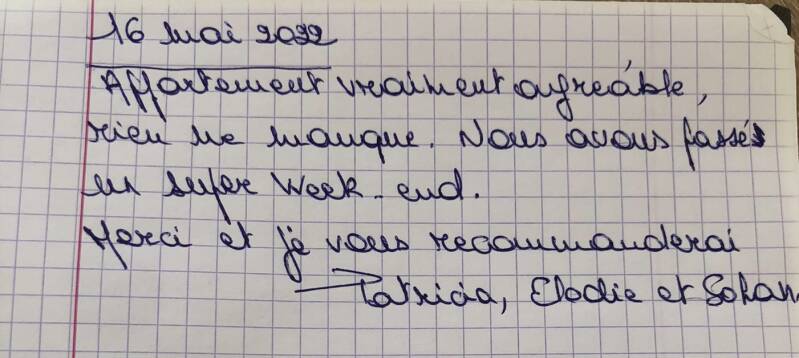 16 mai 2022
Appartement vraiment agréable,
rien ne manque. Nous avons passés
un super week-end.
Merci et je vous recommanderai
Patricia, Elodie et Sohan.